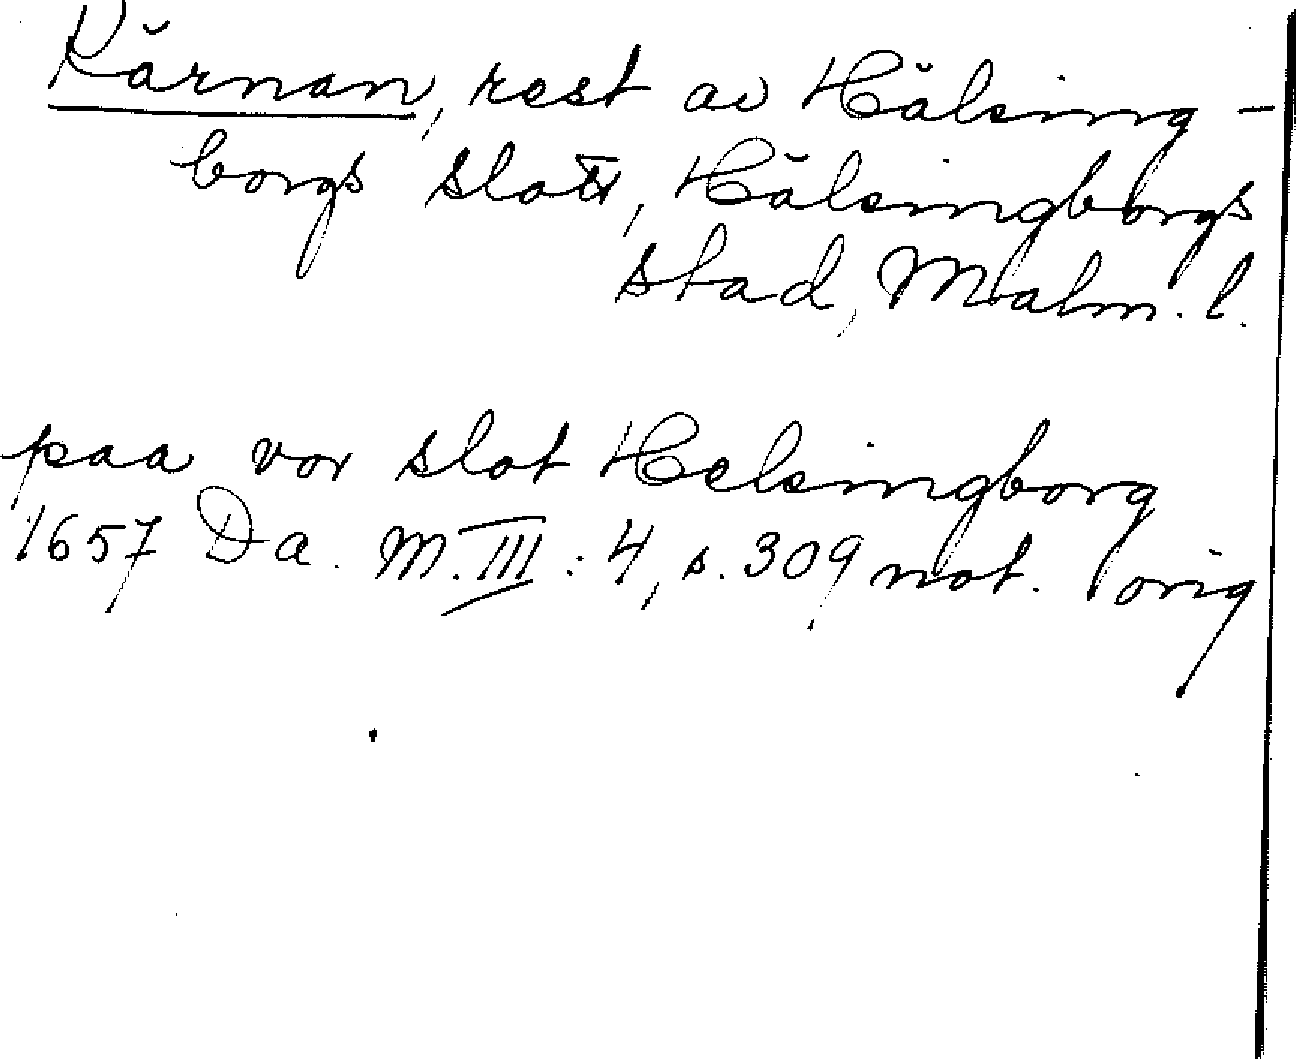 Kärnan, rest av Hälsing-
borgs slott, Hälsingborgs
stad, Malm. l.
paa vor slot Helsingborg
1657 Da. M. III : 4, s. 309 not. orig